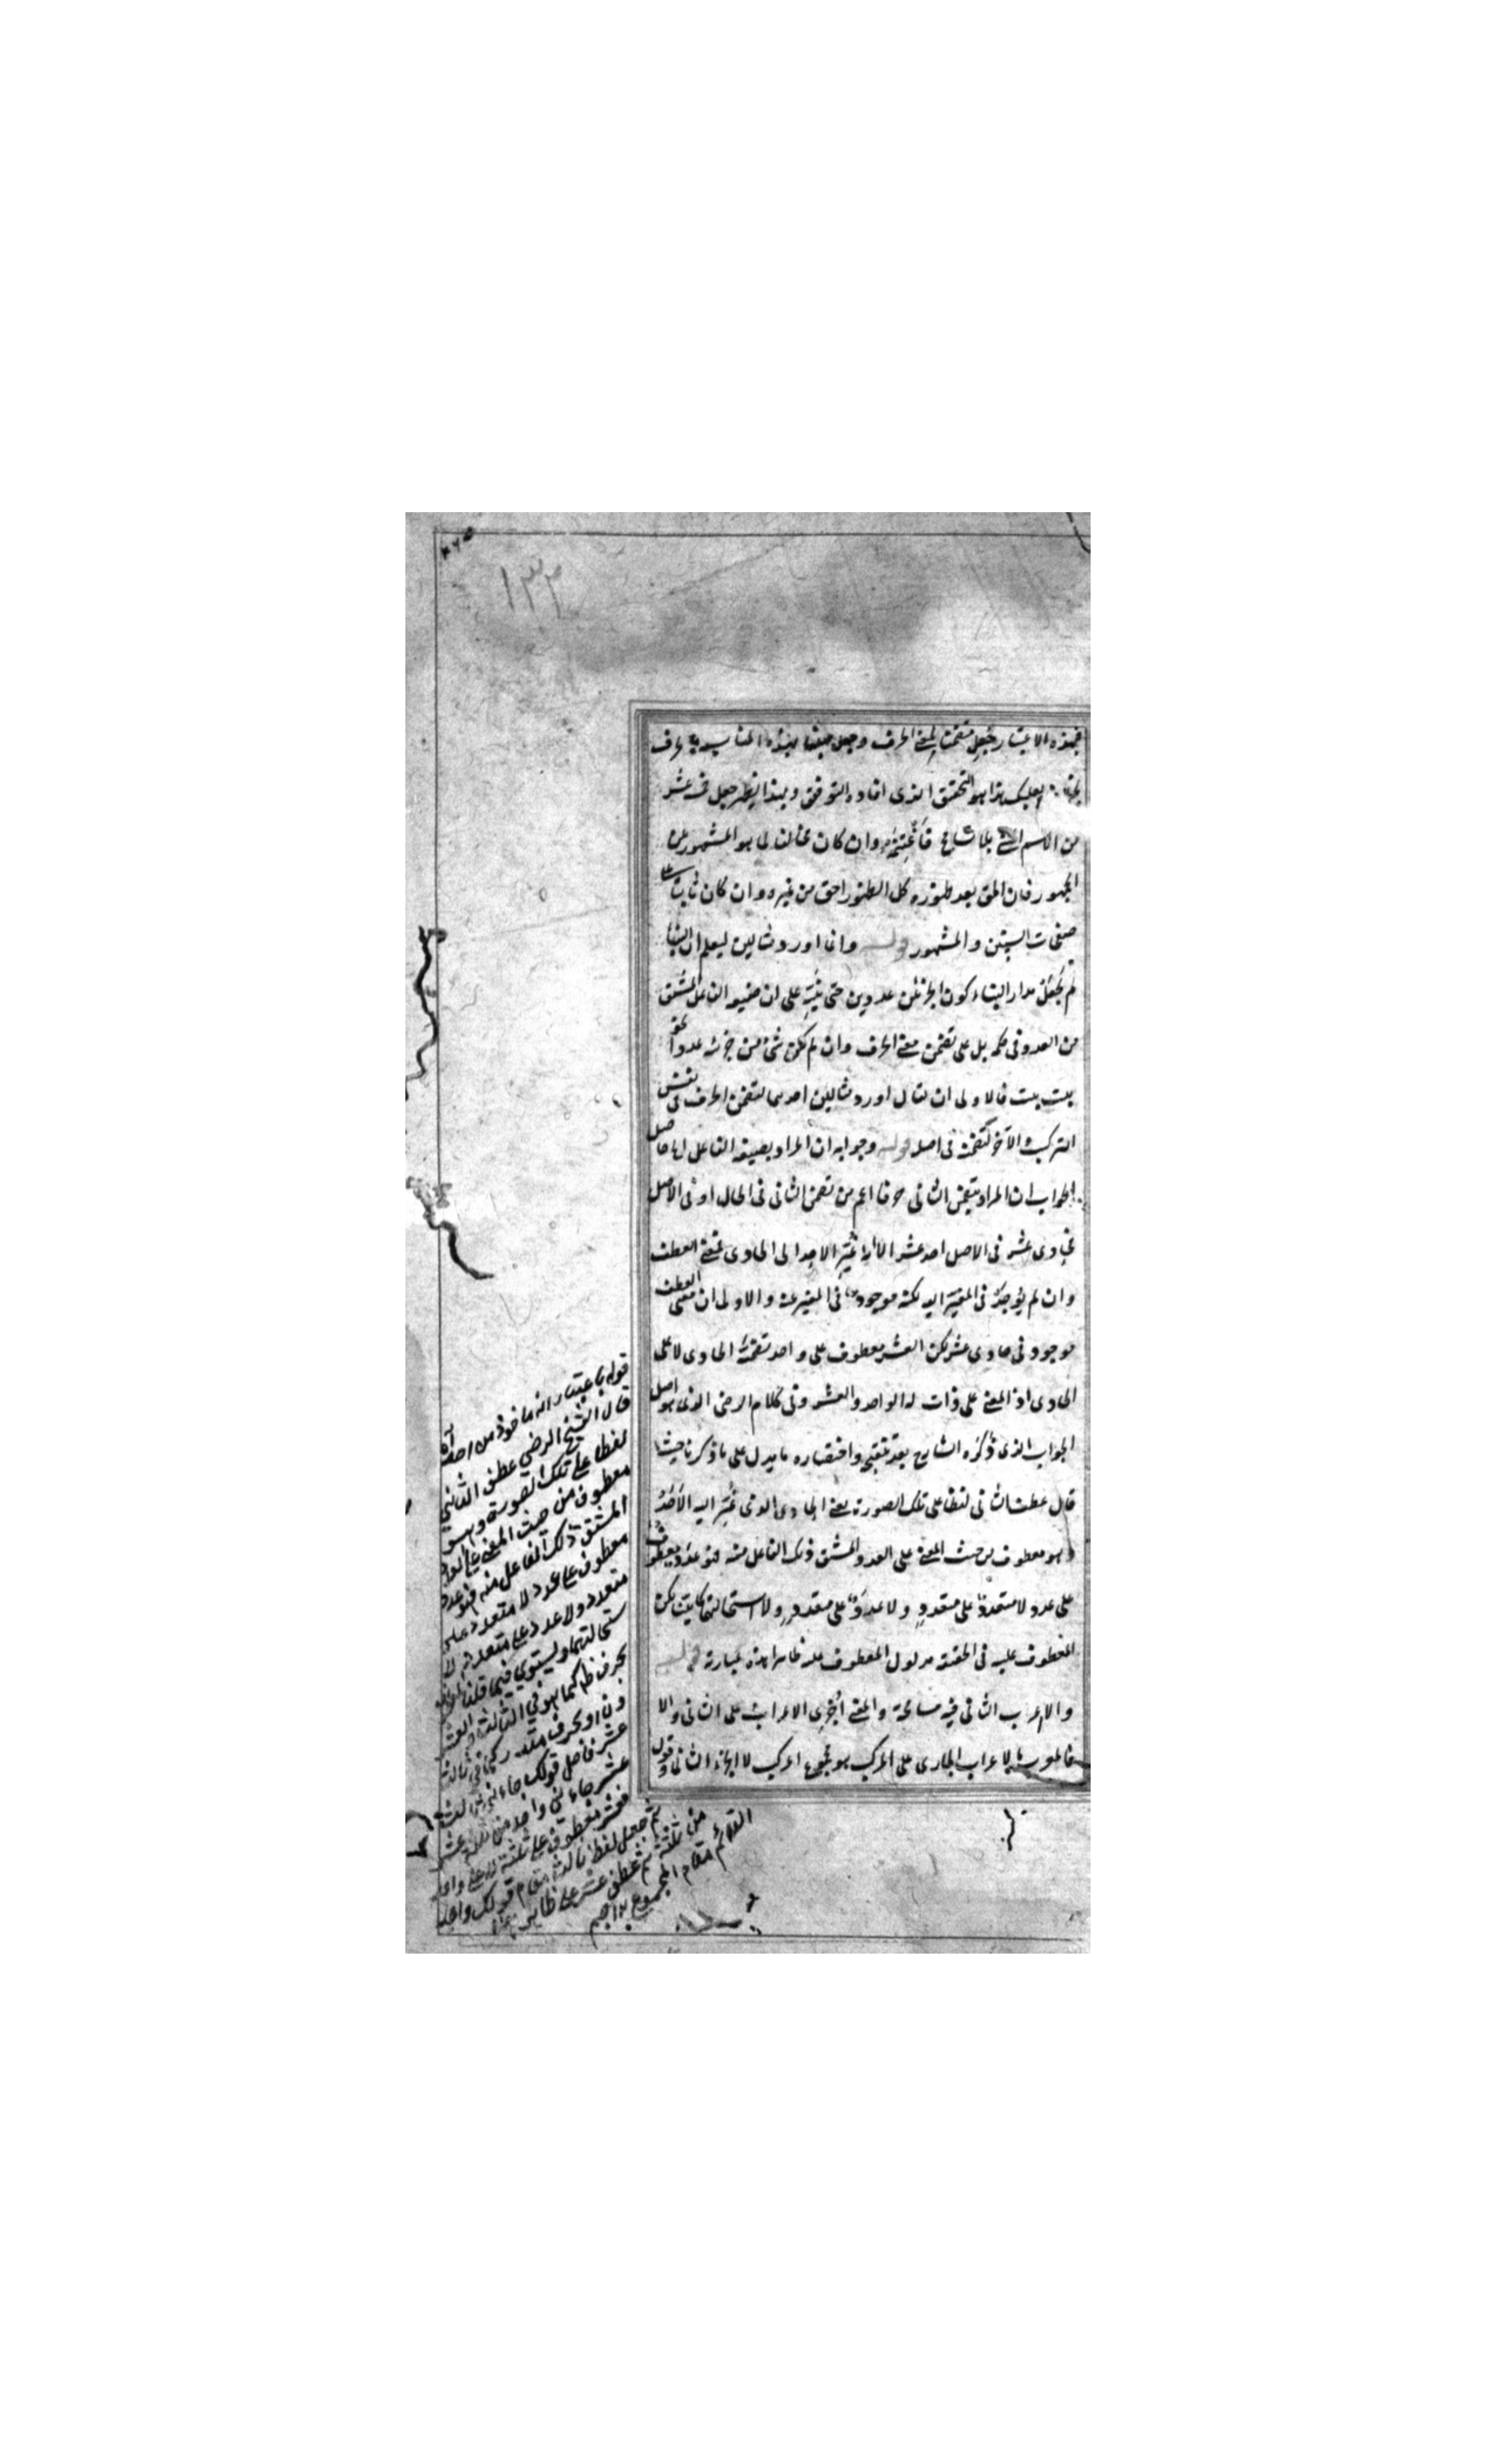 ١٣٢
فبهذه الاعتبار جعل متضمنا لمعنى الحرف وجعل مبنيا بهذه المناسبة
بعلبك هذا هو التحقيق الذى افاده التوفيق وبهذا يظهر جعل خمسة عشر
من الاسم بلا تسامح فاغتنمه وان كان مخالفا لما هو المشهور من
الجمهور فان الحق بعد ظهوره كل الظهور احق من غيره وان كان ثابتا على
صفحات السنين والمشهور قوله وانما اورد مثالين ليعلم ان البناء
لم يجعل مدار البناء كون الجزئين عددين حتى يبتنى على ان صيغة الفاعل المشتق
من العدد فى حكمه بل على تضمن معنى الحرف وان لم يكن شئ من جزئيه عددا نحو
بيت بيت فالاولى ان يقال اورد مثالين احدهما لتضمن الحرف فى نفس
التركيب والآخر لتضمنه فى اصله قوله وجوابه ان المراد بصيغة الفاعل اه حاصل
الجواب ان المراد بتضمن الثانى حرفا اعم من تضمن الثانى فى الحال او فى الاصل
فحادى عشر فى الاصل احد عشر الا انه غير الاحد الى الحادى فمعنى العطف
وان لم يوجد فى المغير اليه لكنه موجود فى المغير عنه والاولى ان معنى العطف
موجود فى حادى عشر لكن العشر معطوف على واحد تضمنه الحادى لا على
الحادى اذ المعنى على ذات له الواحد والعشر وفى كلام الرضى الذى هو اصل
الجواب الذى ذكره الشارح بعد تنقيح واختصاره ما يدل على ما ذكرنا حيث
قال عطف الثانى لفظا على تلك الصورة يعنى الحادى الذى غير اليه الاحد
وهو معطوف من حيث المعنى على العدد المشتق ذلك الفاعل منه فهو عدد معطوف
على عدد لا متعدد على متعدد ولا عدد على متعدد ولا استحالتهما كانت لكن
المعطوف عليه فى الحقيقة مدلول المعطوف عليه ظاهرا هذه عبارته قوله
والاعرب الثانى فيه مسامحة والمعنى اجرى الاعراب على الثانى والا
فالمعرب بالاعراب الجارى على المركب هو مجموع المركب لا الجزء الثانى قوله
قوله باعتبار انه ماخوذ من احد اه
قال الشيخ الرضى عطف الثانى
لفظا على تلك الصورة وهو
معطوف من حيث المعنى على العدد
المشتق ذلك الفاعل منه فهو عدد
معطوف على عدد لا متعدد على
متعدد ولا عدد على متعدد
استحالتهما ويستوى فيما قلنا
بحرف ظاهر كما هو فى الثالث والعشرون
او بحرف مقدر كما فى ثالث
عشر فاصل قولك جاءنى ثالث
عشر جاءنى واحد من ثلثة عشر
فعشر معطوف على ثلثة لا على واحد
ثم جعل لفظ ثالث مقام قولك واحد
من ثلثة ثم عطف عشر على ظاهر
القائم مقام المجموع